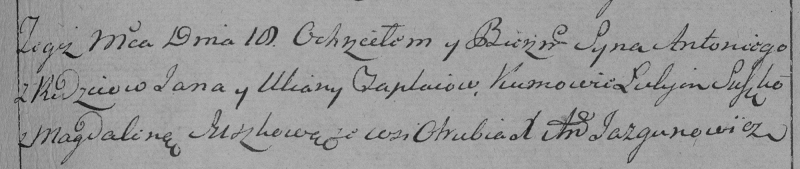 Tegoż Mca Dnia 18. Ochrzciłem y Bierzm. Syna Antoniego
z Rodziców Jana y Uliany Czaplaiow, Kumowie Łukjan Suszko
z Magdaleną Juszkową ze wsi Otrubia X Ant Jazgunowicz